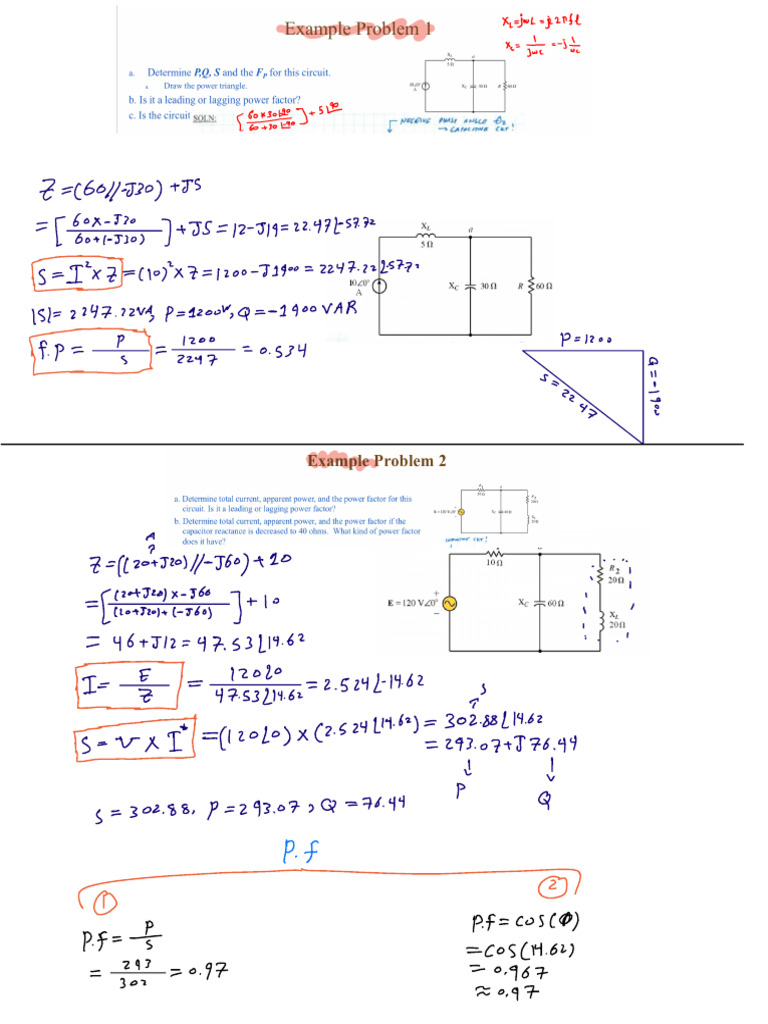 Example Problem 1
X_L = jωL = j2πfL
X_C = 1/jωC = -j 1/ωC
a. Determine P,Q, S and the F_P for this circuit.
a. Draw the power triangle.
b. Is it a leading or lagging power factor?
c. Is the circuit
SOLN:
[60×30∠90 / 60+30∠-90] + 5∠90
NEGATIVE PHASE ANGLE θz
→ CAPACITIVE CKT!
Z = (60//-J30) + J5
= [60×-J30 / 60+(-J30)] + J5 = 12-J19 = 22.47∠-57.72
S = I²×Z = (10)²×Z = 1200-J1900 = 2247.22∠-57.72
|S| = 2247.22VA, P=1200W, Q=-1900 VAR
f.P = P/S = 1200/2247 = 0.534
X_L
5 Ω
a
10∠0°
A
X_C
30 Ω
R
60 Ω
P=1200
Q=-1900
S=2247
Example Problem 2
a. Determine total current, apparent power, and the power factor for this
circuit. Is it a leading or lagging power factor?
b. Determine total current, apparent power, and the power factor if the
capacitor reactance is decreased to 40 ohms. What kind of power factor
does it have?
CAPACITIVE CKT!
Z = ((20+J20)//-J60)+10
= [(20+J20)×-J60 / (20+J20)+(-J60)] + 10
= 46+J12 = 47.53∠14.62
I = E/Z = 120∠0 / 47.53∠14.62 = 2.524∠-14.62
S = V×I* = (120∠0)×(2.524∠14.62) = 302.88∠14.62
= 293.07+J76.44
S
P
Q
10 Ω
E = 120 V∠0°
+
−
X_C
60 Ω
R_2
20 Ω
X_L
20 Ω
S = 302.88, P=293.07, Q=76.44
P.f
1
2
P.f = P/S
= 293/302 = 0.97
P.f = COS(Φ)
= COS(14.62)
= 0.967
≈ 0.97